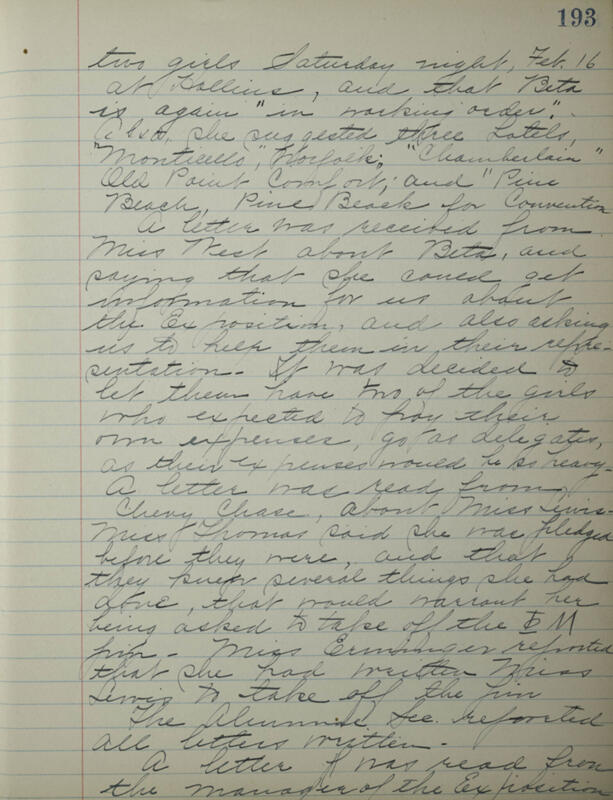 193
two girls Saturday night, Feb. 16
at Hollins, and that Beta
is again "in working order."
Also she suggested three hotels,
"Monticello", Norfolk; "Chamberlain"
Old Point Comfort; and "Pine
Beach, Pine Beach for Convention
A letter was received from
Miss West about Beta, and
saying that she could get
information for us about
the Exposition, and also asking
us to help them in their repre-
sentation - It was decided to
let them have two of the girls
who expected to pay their
own expenses, go as delegates,
as their expenses would be so heavy -
A letter was read from
Chevy Chase, about Miss Lewis -
Miss Thomas said she was pledged
before they were, and that
they knew several things she had
done, that would warrant her
being asked to take off the Φ M
pin - Miss Erminger reported
that she had written Miss
Lewis to take off the pin
The Alumnae Sec. reported
all letters written -
A letter was read from
the manager of the Exposition